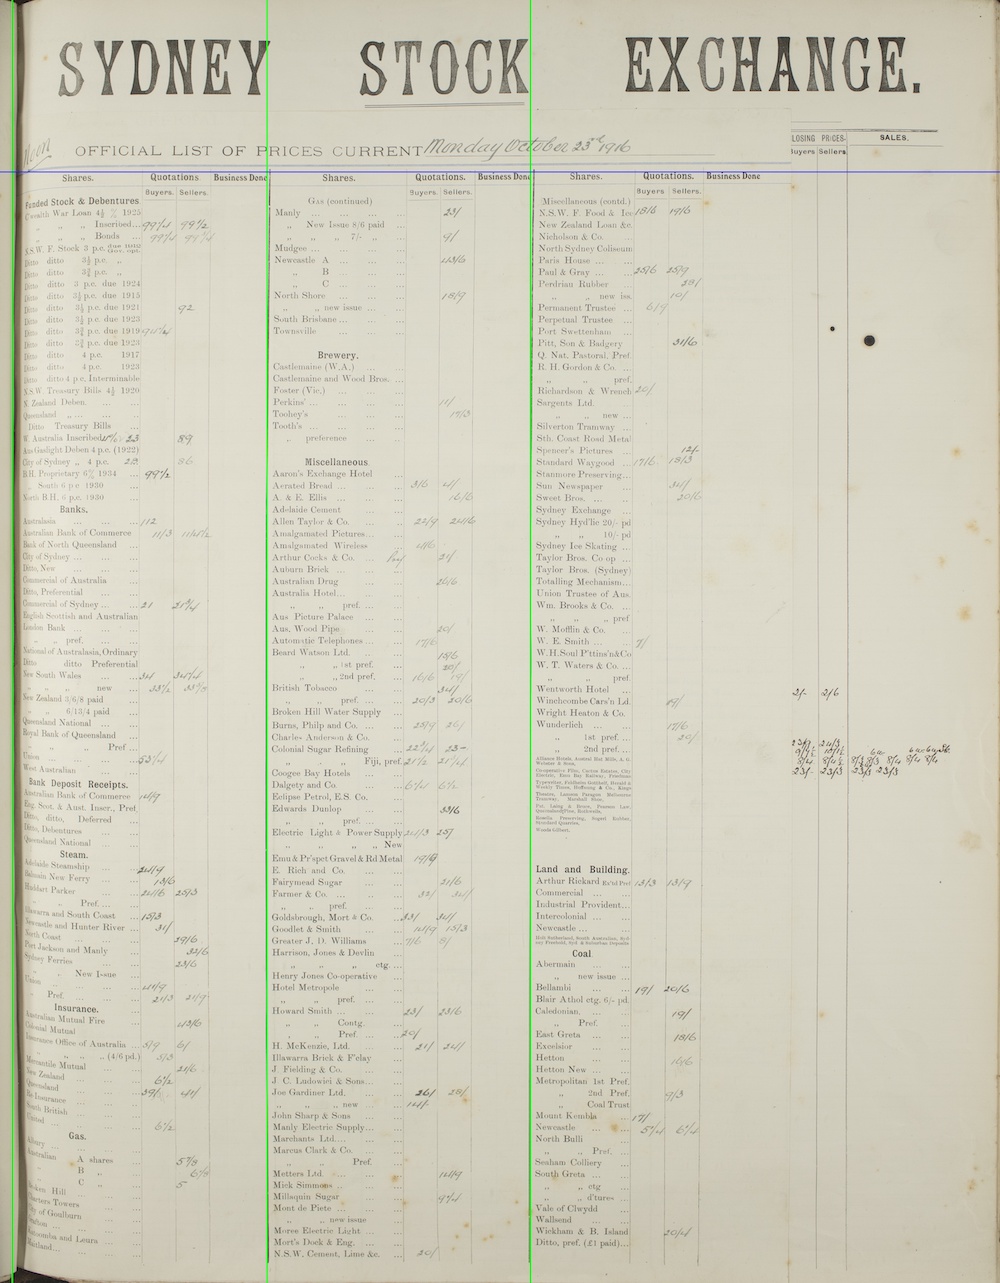 SYDNEY STOCK EXCHANGE.
Noon
OFFICIAL LIST OF PRICES CURRENT Monday October 23rd 1916
LOSING PRICES- SALES.
Buyers Sellers
Shares. Quotations Business Done
Buyers. Sellers.
Funded Stock & Debentures
C'wealth War Loan 4½ % 1925
„ „ „ Inscribed... 99¼ 99½
„ „ „ Bonds 99¼
N.S.W. F. Stock 3 p.c.
Ditto ditto 3½ p.c. „
Ditto ditto 3¾ p.c. „
Ditto ditto 3 p.c. due 1924
Ditto ditto 3½ p.c. due 1915
Ditto ditto 3½ p.c. due 1921 92
Ditto ditto 3½ p.c. due 1923
Ditto ditto 3¾ p.c. due 1919
Ditto ditto 3¾ p.c. due 1923
Ditto ditto 4 p.c. 1917
Ditto ditto 4 p.c. 1923
Ditto ditto 4 p.c. Interminable
N.S.W. Treasury Bills 4½ 1920
N. Zealand Deben.
Queensland „
Ditto Treasury Bills
W. Australia Inscribed 23 89
Aus Gaslight Deben 4 p.c. (1922)
City of Sydney „ 4 p.c. 86
B.H. Proprietary 6% 1934 99½
„ South 6 p c 1930
North B.H. 6 p.c. 1930
Banks.
Australasia 112
Australian Bank of Commerce 11/3 11/4½
Bank of North Queensland
City of Sydney
Ditto, New
Commercial of Australia
Ditto, Preferential
Commercial of Sydney 21 21¼
English Scottish and Australian
London Bank
„ „ pref.
National of Australasia, Ordinary
Ditto ditto Preferential
New South Wales 34 34¼
„ „ „ new 33½
New Zealand 3/6/8 paid
„ 6/13/4 paid
Queensland National
Royal Bank of Queensland
„ „ „ Pref
Union 53¼
West Australian
Bank Deposit Receipts.
Australian Bank of Commerce
Eng. Scot. & Aust. Inscr., Pref.
Ditto, ditto, Deferred
Ditto, Debentures
Queensland National
Steam.
Adelaide Steamship
Balmain New Ferry 13/6
Huddart Parker 24/6 25/3
„ Pref.
Illawarra and South Coast 15/3
Newcastle and Hunter River 31/
North Coast 29/6
Port Jackson and Manly 32/6
Sydney Ferries 23/6
„ „ New Issue
Union 41/9
„ Pref. 21/3 21/9
Insurance.
Australian Mutual Fire 43/6
Colonial Mutual
Insurance Office of Australia 5/9 6/
„ „ „ (4/6 pd.) 5/3
Mercantile Mutual 21/6
New Zealand 6½
Queensland 39/ 41/
Re Insurance
South British
United 6½
Gas.
Albury
Australian A shares 5⅞
„ B „ 6⅞
„ C „ 5
Broken Hill
Charters Towers
City of Goulburn
Grafton
Katoomba and Leura
Maitland
Shares. Quotations. Business Done
Buyers. Sellers.
GAS (continued)
Manly 23/
„ New Issue 8/6 paid
„ „ 7/- „ 9/
Mudgee
Newcastle A 43/6
„ B
„ C
North Shore 18/9
„ „ new issue
South Brisbane
Townsville
Brewery.
Castlemaine (W.A.)
Castlemaine and Wood Bros.
Foster (Vic.)
Perkins' 11/
Toohey's 17/3
Tooth's
„ preference
Miscellaneous
Aaron's Exchange Hotel
Aerated Bread 3/6 4/
A. & E. Ellis 16/6
Adelaide Cement
Allen Taylor & Co. 22/9 24/6
Amalgamated Pictures
Amalgamated Wireless
Arthur Cocks & Co.
Auburn Brick
Australian Drug 26/6
Australia Hotel
„ „ pref.
Aus Picture Palace
Aus. Wood Pipe 20/
Automatic Telephones 17/6
Beard Watson Ltd. 15/6
„ „ 1st pref. 20/
„ „ 2nd pref. 16/6 19/
British Tobacco 34/
„ „ pref. 20/3 20/6
Broken Hill Water Supply
Burns, Philp and Co. 25/9 26/
Charles Anderson & Co.
Colonial Sugar Refining 22¼ 23-
„ „ Fiji, pref. 21½
Coogee Bay Hotels
Dalgety and Co 6¼ 6½
Eclipse Petrol, E.S. Co.
Edwards Dunlop 33/6
„ „ pref.
Electric Light & Power Supply 24/3 25/
„ „ „ „ New
Emu & Pr'spct Gravel & Rd Metal 19/9
E. Rich and Co.
Fairymead Sugar 21/6
Farmer & Co. 32/ 34/
„ „ pref.
Goldsbrough, Mort & Co. 33/ 34/
Goodlet & Smith 14/9 15/3
Greater J. D. Williams 7/6 8/
Harrison, Jones & Devlin
„ „ „ ctg.
Henry Jones Co-operative
Hotel Metropole
„ „ pref.
Howard Smith 23/ 23/6
„ „ Contg.
„ „ Pref. 20/
H. McKenzie, Ltd. 21/ 24/
Illawarra Brick & F'clay
J Fielding & Co.
J C. Ludowici & Sons
Joe Gardiner Ltd. 26/ 28/
„ „ „ new 14/-
John Sharp & Sons
Manly Electric Supply
Marchants Ltd.
Marcus Clark & Co.
„ „ Pref.
Metters Ltd. 14/9
Mick Simmons
Millaquin Sugar 9¼
Mont de Piete
„ „ new issue
Moree Electric Light
Mort's Dock & Eng.
N.S.W. Cement, Lime &c. 20/
Shares. Quotations. Business Done
Buyers Sellers.
Miscellaneous (contd.)
N.S.W. F. Food & Ice 18/6 19/6
New Zealand Loan &c.
Nicholson & Co.
North Sydney Coliseum
Paris House
Paul & Gray 25/6 25/9
Perdrian Rubber 28/
„ „ new iss. 10/
Permanent Trustee 6/9
Perpetual Trustee
Port Swettenham
Pitt, Son & Badgery 31/6
Q. Nat. Pastoral, Pref.
R. H. Gordon & Co.
„ „ pref.
Richardson & Wrench 20/
Sargents Ltd.
„ „ new
Silverton Tramway
Sth. Coast Road Metal
Spencer's Pictures 12/-
Standard Waygood 17/6 18/3
Stanmore Preserving
Sun Newspaper 34/
Sweet Bros. 20/6
Sydney Exchange
Sydney Hyd'lic 20/- pd
„ „ 10/- pd
Sydney Ice Skating
Taylor Bros. Co op
Taylor Bros. (Sydney)
Totalling Mechanism
Union Trustee of Aus.
Wm. Brooks & Co.
„ „ „ pref
W. Mofflin & Co.
W. E. Smith 7/
W.H.Soul P'ttins'n&Co
W. T. Waters & Co.
„ „ pref.
Wentworth Hotel 2/- 2/6
Winchcombe Cars'n Ld. 19/
Wright Heaton & Co.
Wunderlich 17/6
„ 1st pref. 20/ 23/ 24/3
„ 2nd pref.
Land and Building.
Arthur Rickard 13/3 13/9
Commercial
Industrial Provident
Intercolonial
Newcastle
Coal
Abermain
„ new issue
Bellambi 19/ 20/6
Blair Athol ctg. 6/- pd.
Caledonian. 19/
„ Pref.
East Greta 18/6
Excelsior
Hetton 16/6
Hetton New
Metropolitan 1st Pref.
„ 2nd Pref. 9/3
„ Coal Trust
Mount Kembla 17/
Newcastle 5¼ 6¼
North Bulli
„ „ Pref.
Seaham Colliery
South Greta
„ „ ctg
„ „ d'tures
Vale of Clwydd
Wallsend
Wickham & B. Island 20/4
Ditto, pref. (£1 paid)